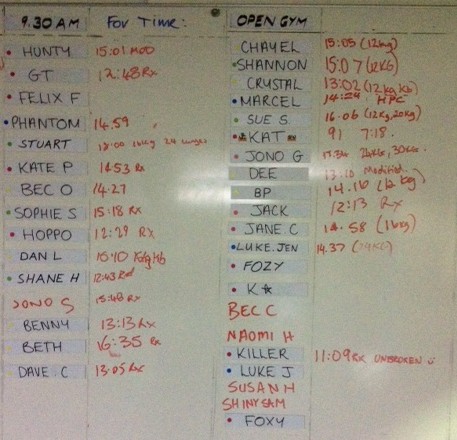 9.30 AM For Time:
HUNTY 15:01 MOD
GT 12:48 Rx
FELIX F
PHANTOM 14.59
STUART 18:00 24
KATE P 14:53 Rx
BEC O 14-27
SOPHIE S 15:18 Rx
HOPPO 12:29 RX
DAN L 15:10
SHANE H 12:43 Rx
JONO S 15:48 Rx
BENNY 13:13 Rx
BETH 16:35 Rx
DAVE. C 13:05 Rx
OPEN GYM
CHAYEL 15:05 (12kg)
SHANNON 15:07 (12KG)
CRYSTAL 13:02 (12kg kb)
MARCEL 14:24 HPC
SUE S 16.06 (12kg, 20kg)
KAT 91 7:18.
JONO G
DEE 13:10 Modified.
BP 14.16 (12 kg)
JACK 12:13 Rx
JANE. C 14.58
LUKE. JEN 14.37
FOZY
K☆
BEC C
NAOMI H
KILLER 11:09 RX UNBROKEN
LUKE J
SUSAN H
SHINY SAM
FOXY